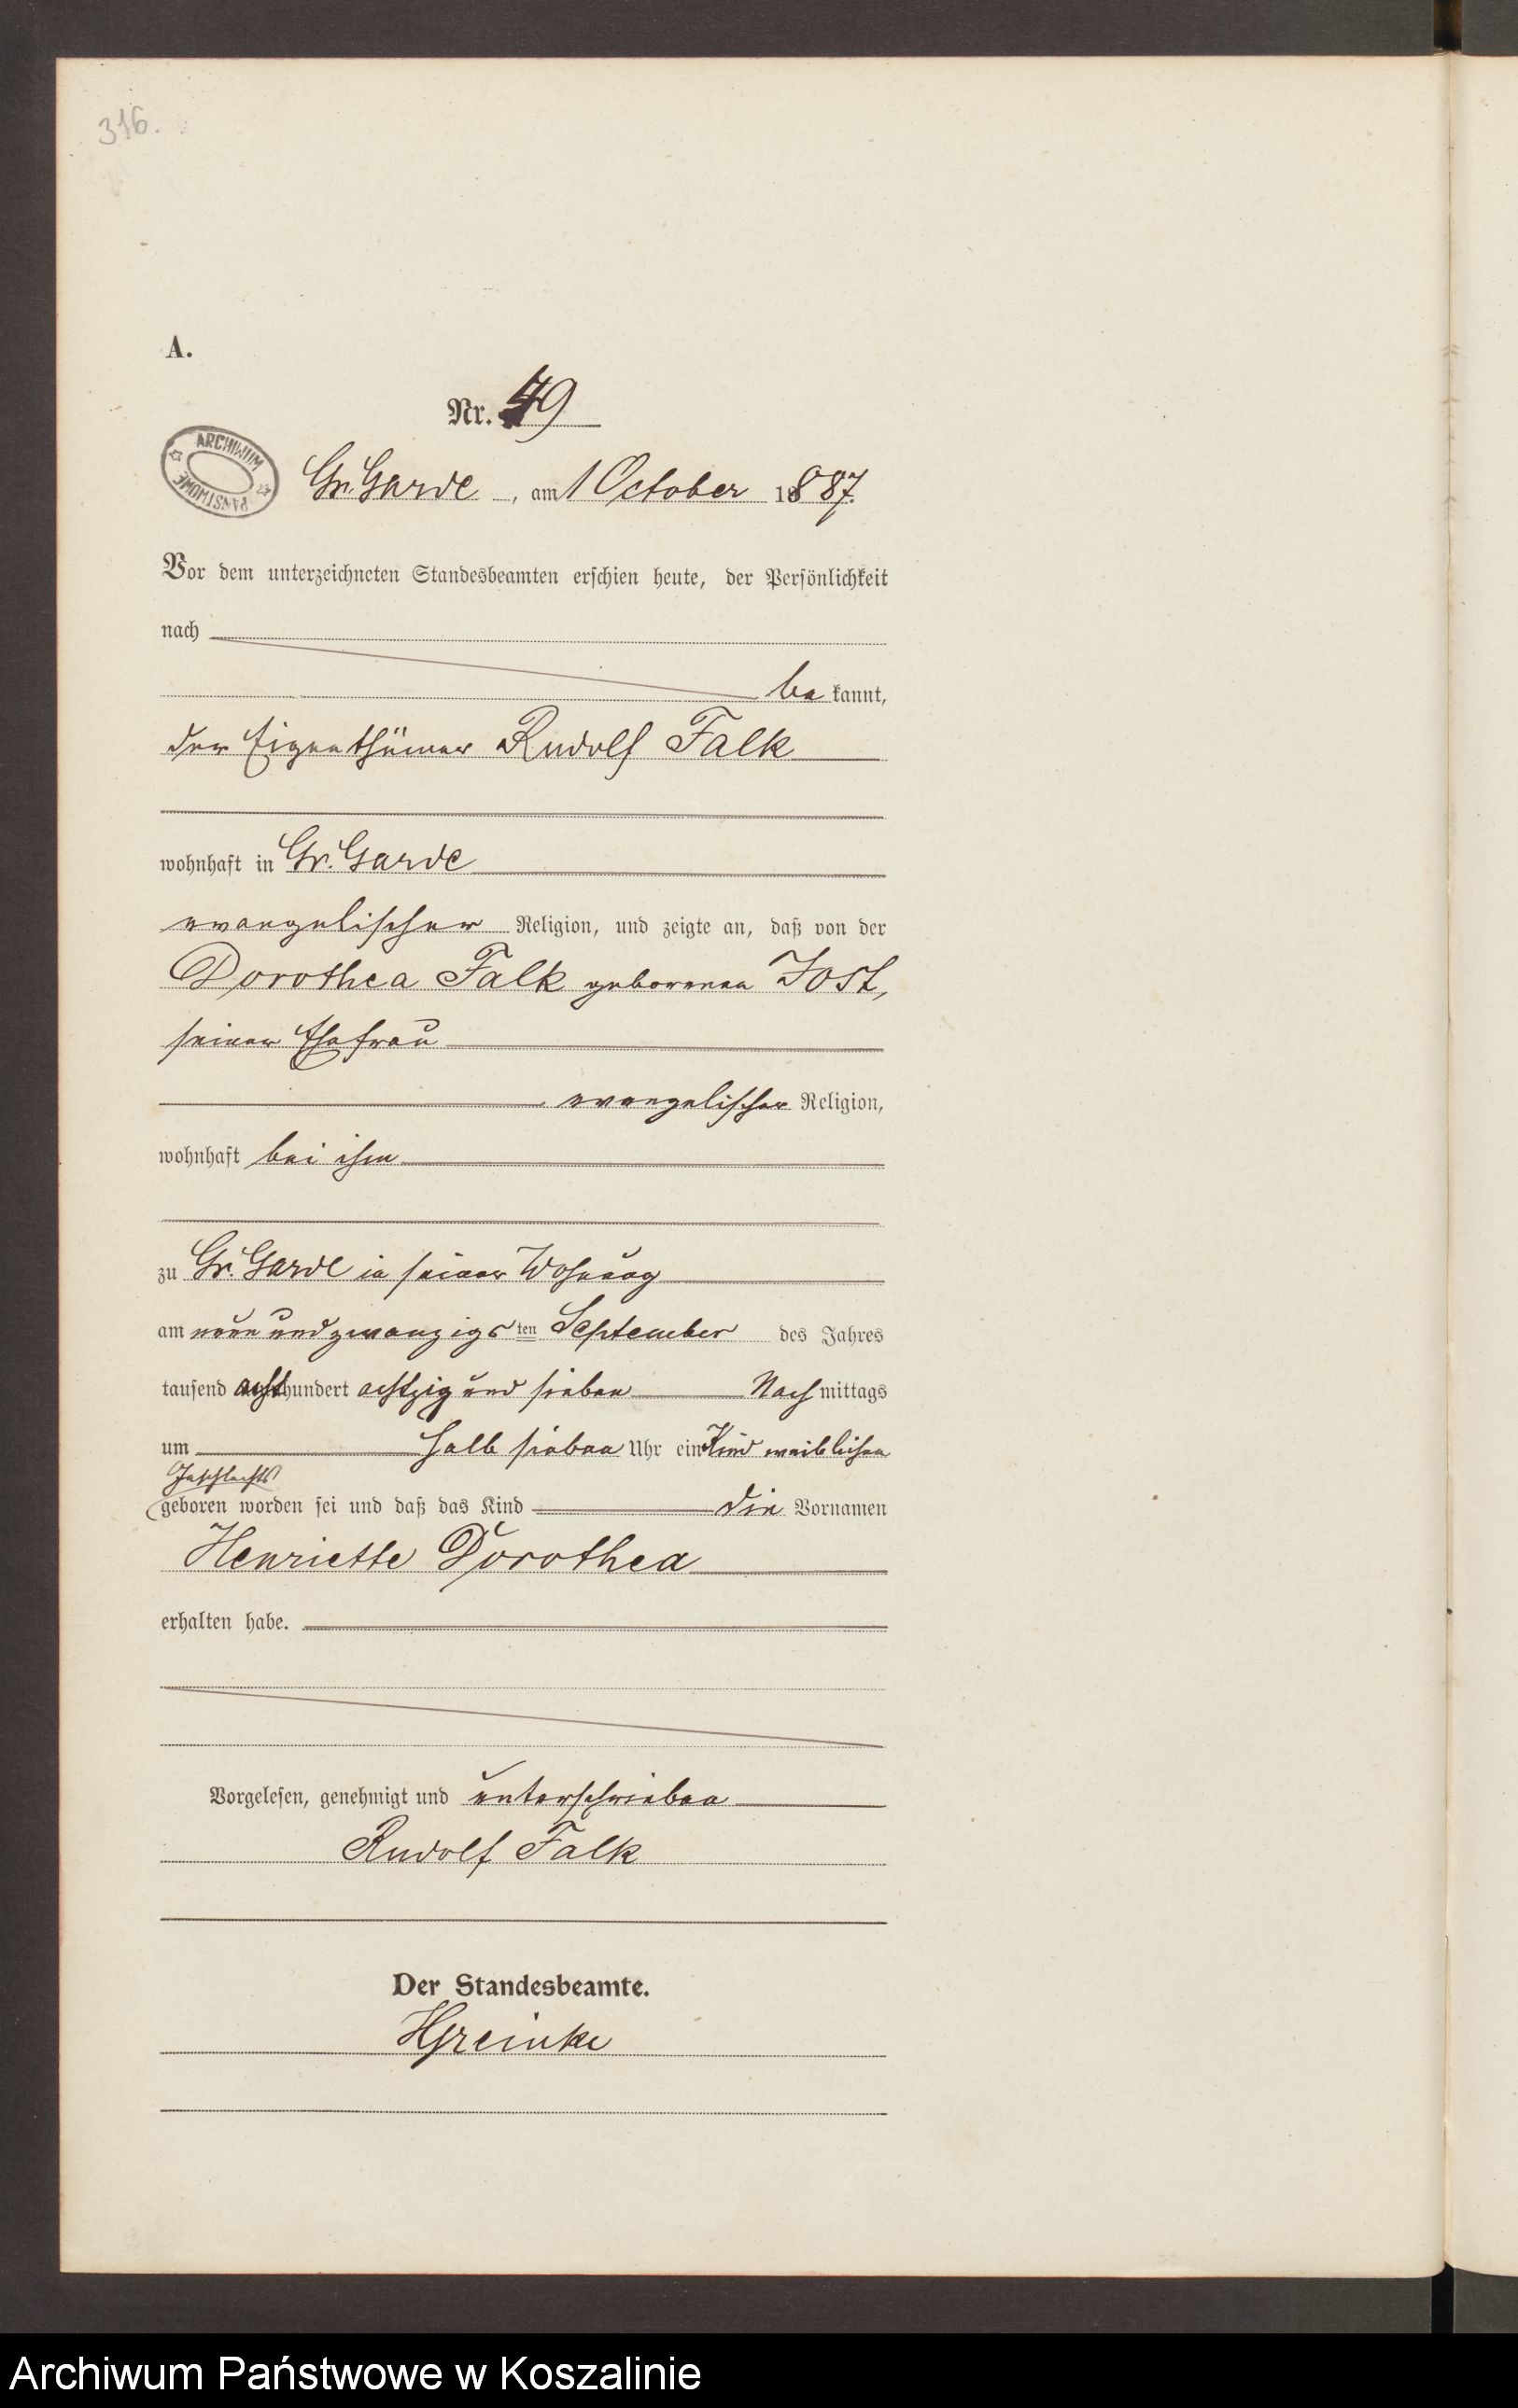 316.
A.
Nr. 49
ARCHIWUM PAŃSTWOWE
Gr. Garde, am 1 October 1887.
Vor dem unterzeichneten Standesbeamten erschien heute, der Persönlichkeit
nach
be kannt,
der Eigenthümer Rudolf Falk
wohnhaft in Gr. Garde
evangelischer Religion, und zeigte an, daß von der
Dorothea Falk geborenen Jost,
seiner Ehefrau
evangelischer Religion,
wohnhaft bei ihm
zu Gr. Garde in seiner Wohnung
am neun und zwanzigsten September des Jahres
tausend achthundert achtzig und sieben Nachmittags
um halb sieben Uhr ein Kind weiblichen
Geschlechts
geboren worden sei und daß das Kind die Vornamen
Henriette Dorothea
erhalten habe.
Vorgelesen, genehmigt und unterschrieben
Rudolf Falk
Der Standesbeamte.
HGreinke
Archiwum Państwowe w Koszalinie